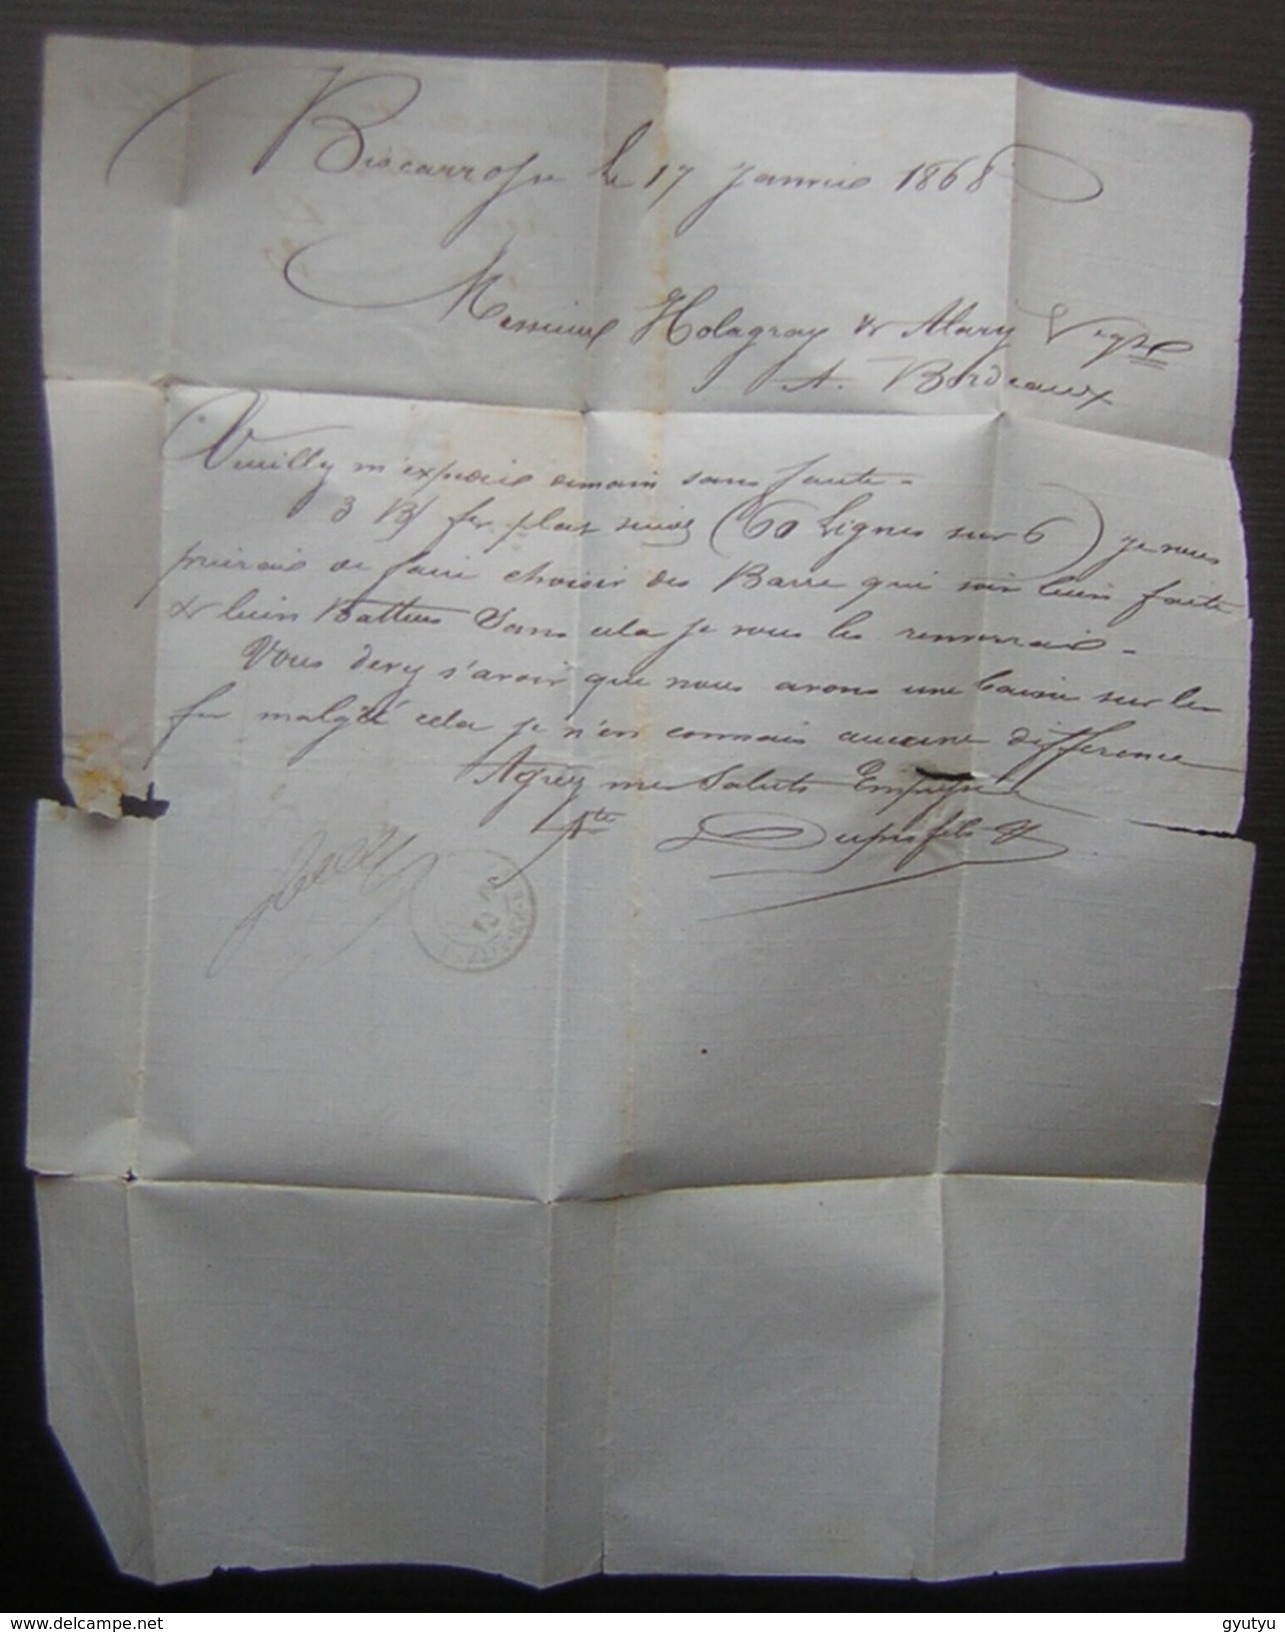 Biscarrosse le 17 Janvier 1868
Messieurs Holagray & Alary Negts
A. Bordeaux
Veuilly m'expedie demain sans faute -
3 B/ fer plat suivez (60 Lignes sur 6) je vous
prierais de faire choisir des Barre qui soit bien faite
& bien Battues Sans cela je vous les renverrais -
Vous devez s'avoir que nous avons une baisse sur le
fer malgré cela je n'en connais aucune difference
Agréez mes Saluts Empressés
Dupuis fils
delcampe.net
gyutyu